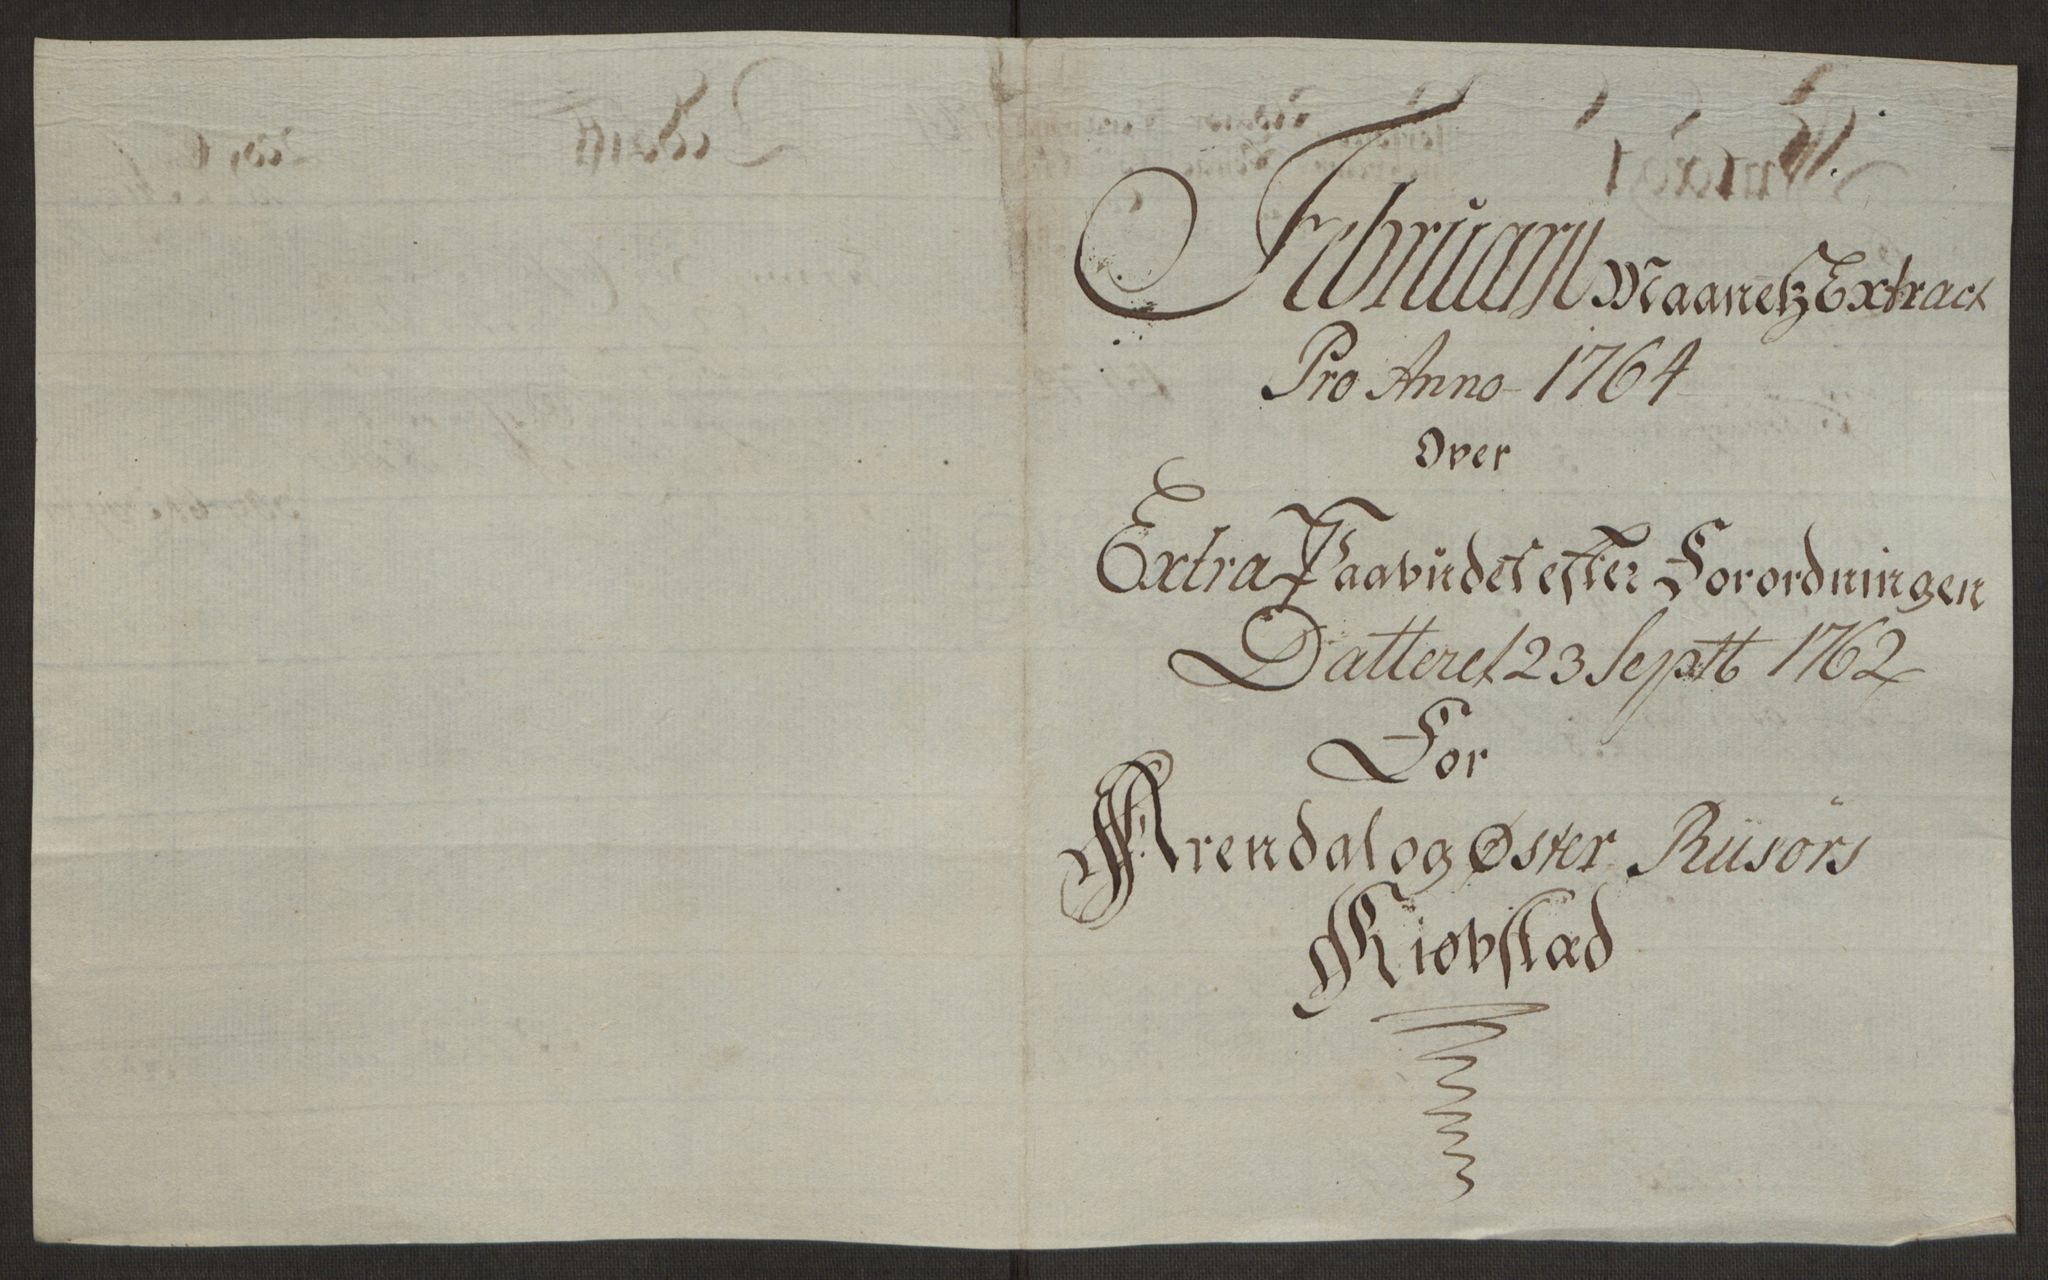 Februarii Maanetz Extract
Pro Anno 1764
Over
Extra Paabudet efter Forordningen
Datteret 23 Septb 1762
For
Arendal og Øster Riisörs
Kiøbstæd